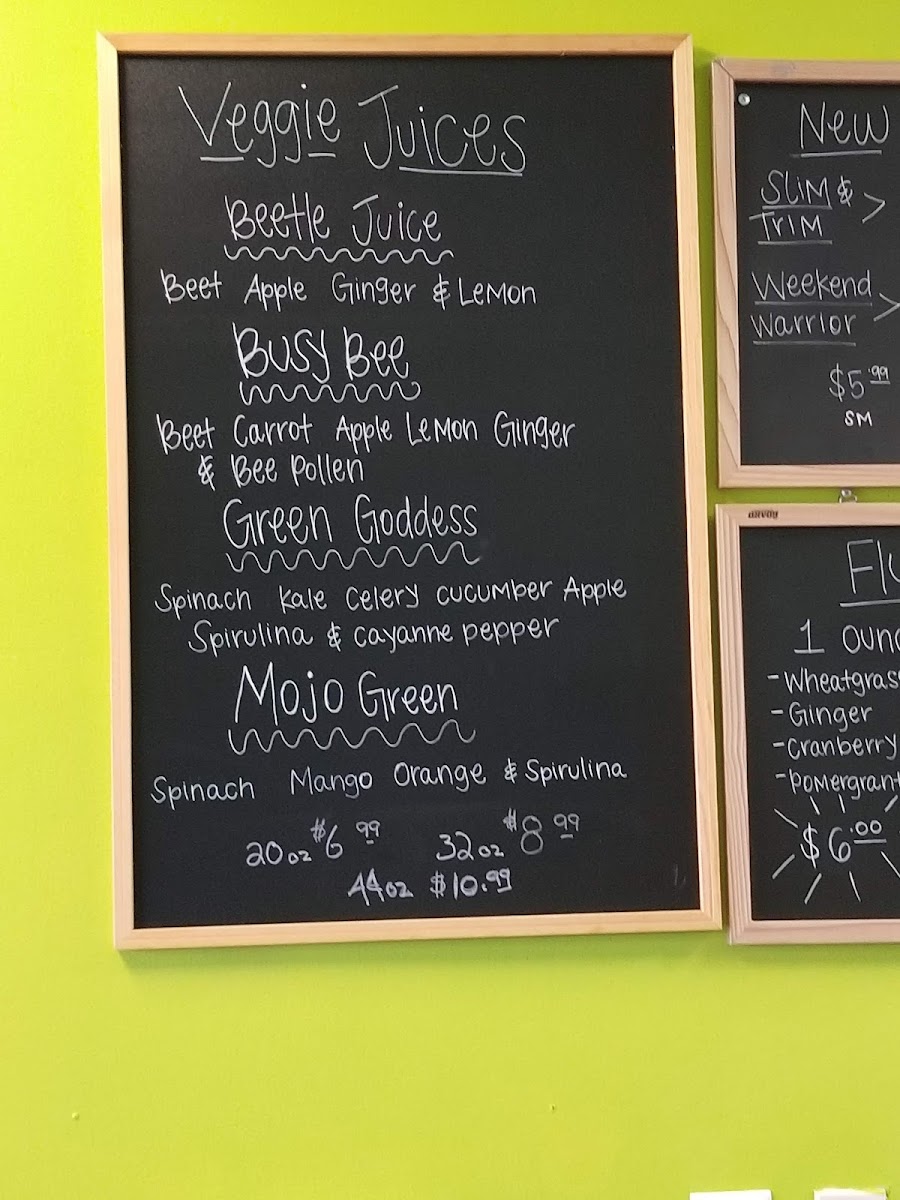 Veggie Juices
Beetle Juice
Beet Apple Ginger & Lemon
Busy Bee
Beet Carrot Apple Lemon Ginger
& Bee Pollen
Green Goddess
Spinach Kale Celery Cucumber Apple
Spirulina & Cayanne Pepper
Mojo Green
Spinach Mango Orange & Spirulina
20oz $6.99 32oz $8.99
44oz $10.99
New
Slim &
Trim >
Weekend
Warrior >
$5.99
SM
1
-Wheatgrass
-Ginger
-Cranberry
$6.00